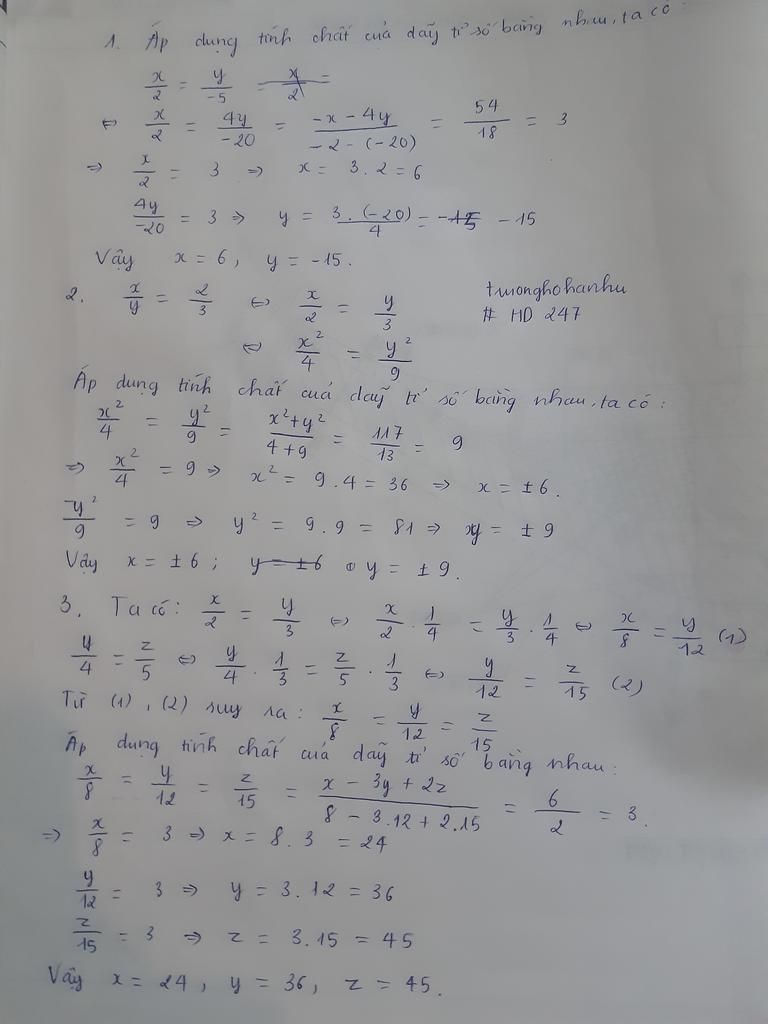 1. Áp dụng tính chất của dãy tỉ số bằng nhau, ta có
x/2 = y/-5 = x/2 =
⇔ x/2 = 4y/-20 = (-x - 4y)/(-2 - (-20)) = 54/18 = 3
⇒ x/2 = 3 ⇒ x = 3.2 = 6
4y/-20 = 3 ⇒ y = 3.(-20)/4 = -15 -15
Vậy x = 6, y = -15.
2. x/y = 2/3 ⇔ x/2 = y/3
truonghohanhu
# HD 247
⇔ x²/4 = y²/9
Áp dụng tính chất cuả dãy tỉ số bằng nhau, ta có:
x²/4 = y²/9 = (x²+y²)/(4+9) = 117/13 = 9
⇒ x²/4 = 9 ⇒ x² = 9.4 = 36 ⇒ x = ±6.
y²/9 = 9 ⇒ y² = 9.9 = 81 ⇒ y = ±9
Vậy x = ±6; y = ±6 y = ±9.
3. Ta có: x/2 = y/3 ⇔ x/2 . 1/4 = y/3 . 1/4 ⇔ x/8 = y/12 (1)
y/4 = z/5 ⇔ y/4 . 1/3 = z/5 . 1/3 ⇔ y/12 = z/15 (2)
Từ (1), (2) suy ra: x/8 = y/12 = z/15
Áp dụng tính chất cuả dãy tỉ số bằng nhau:
x/8 = y/12 = z/15 = (x - 3y + 2z)/(8 - 3.12 + 2.15) = 6/2 = 3.
⇒ x/8 = 3 ⇒ x = 8.3 = 24
y/12 = 3 ⇒ y = 3.12 = 36
z/15 = 3 ⇒ z = 3.15 = 45
Vậy x = 24, y = 36, z = 45.